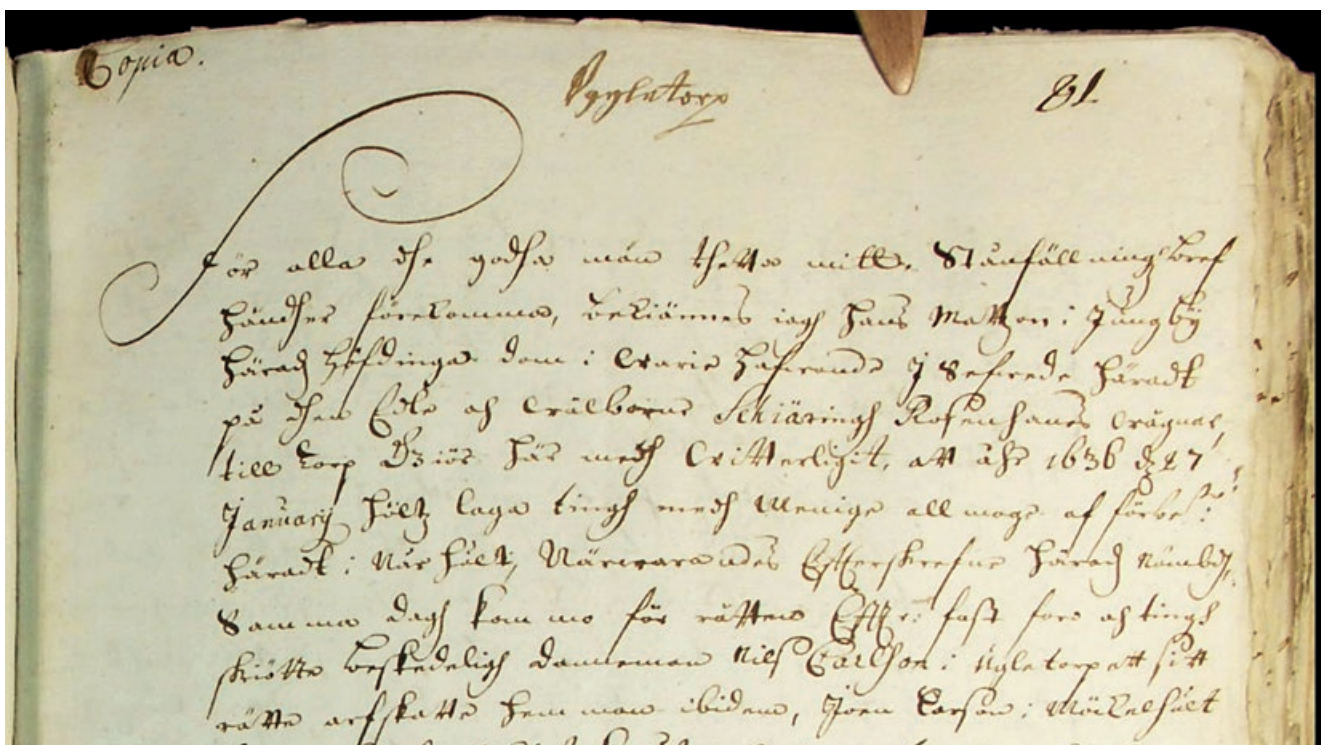 Copia.
Ygletorp
81
För alla the godha män thetta mitt Ståndfällningz bref
händher förekomma, bekiännes iagh Hans Mattzon i Liungby
häradz höfdinga dom i Hafvande I Sefwede häradt
på then Edle och Wälborne Schiäringh Rosenhanes wägnar,
till Torp giör här medh Witterligit, att åhr 1636 d 27
January höltz laga tingh medh Menige allmoge af förbe:te
häradt i Mårhult, Närwarandes Effterskrefne häradz Nämbd,
Samma dagh kom mo för rätten Effter fast fore och tingh
skiötte beskedeligh danneman Nilss Carlsson i Ygletorp ett sitt
rätte arfskatte hemman ibidem, Joen Larson i Möckelhult